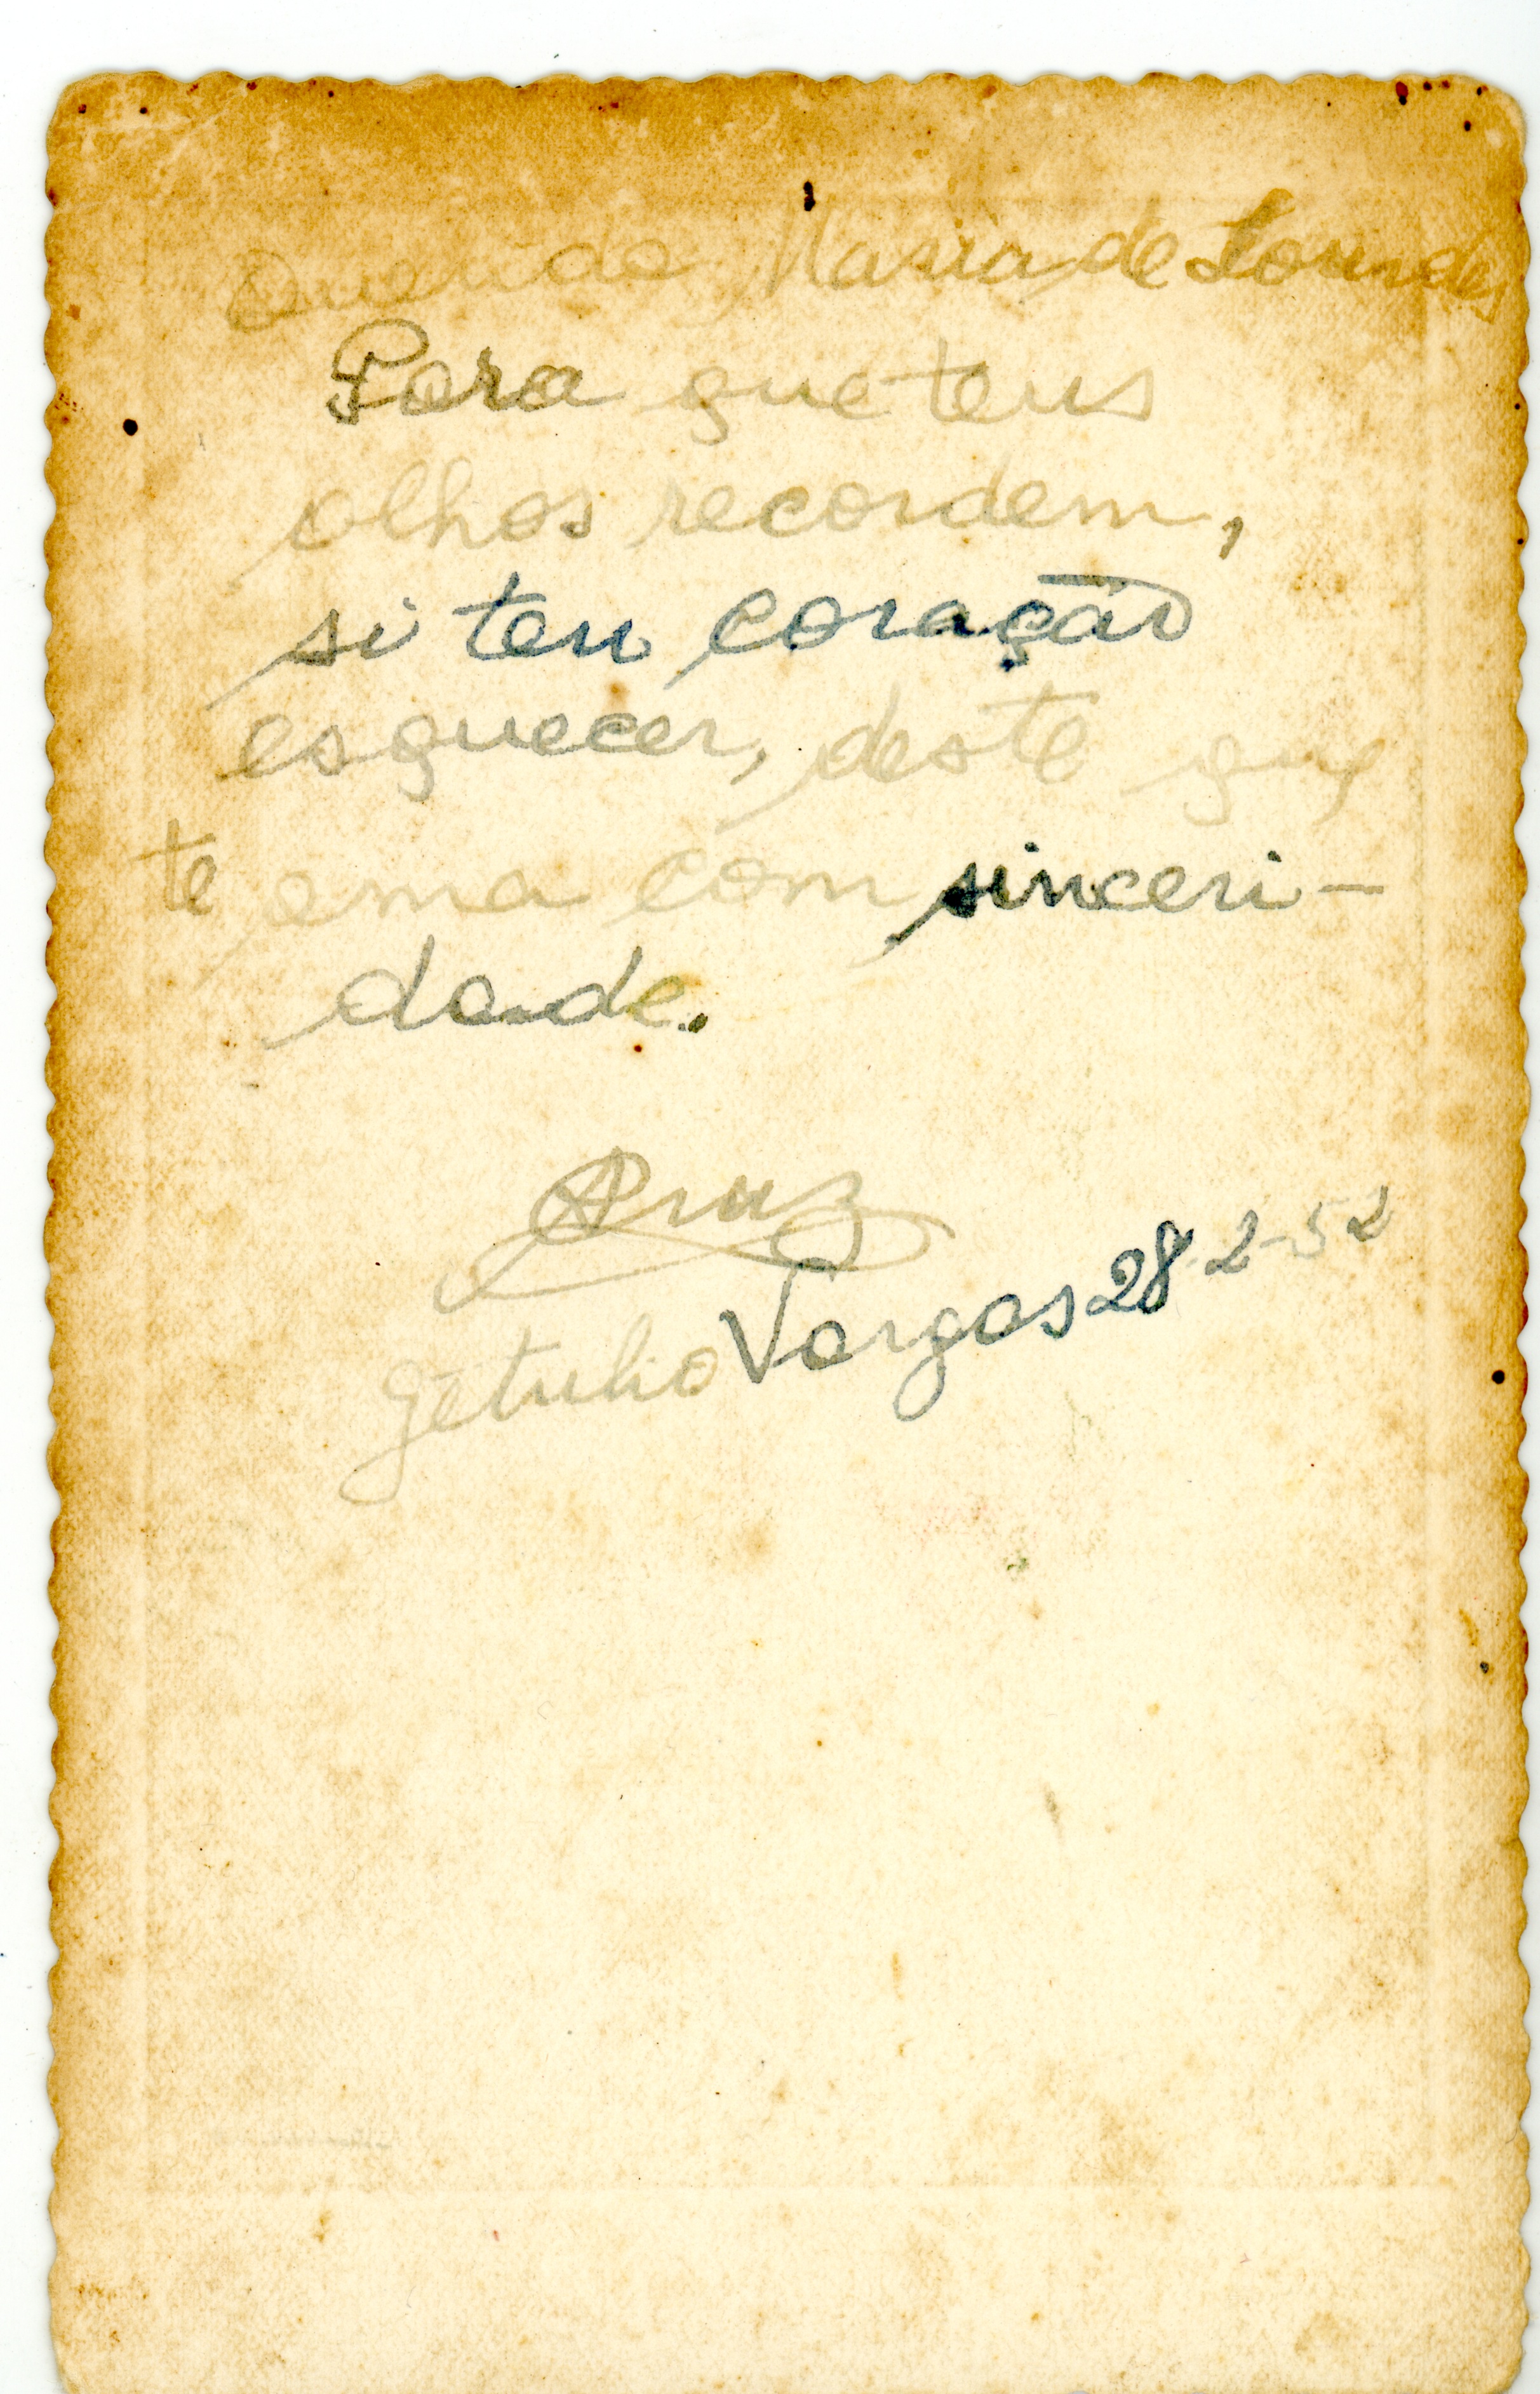 Querida Maria de Lourdes
Para que teus
olhos recordem,
si teu coração
esquecer, deste que
te ama com sinceri-
dade.
Getulio Vargas 28-2-52